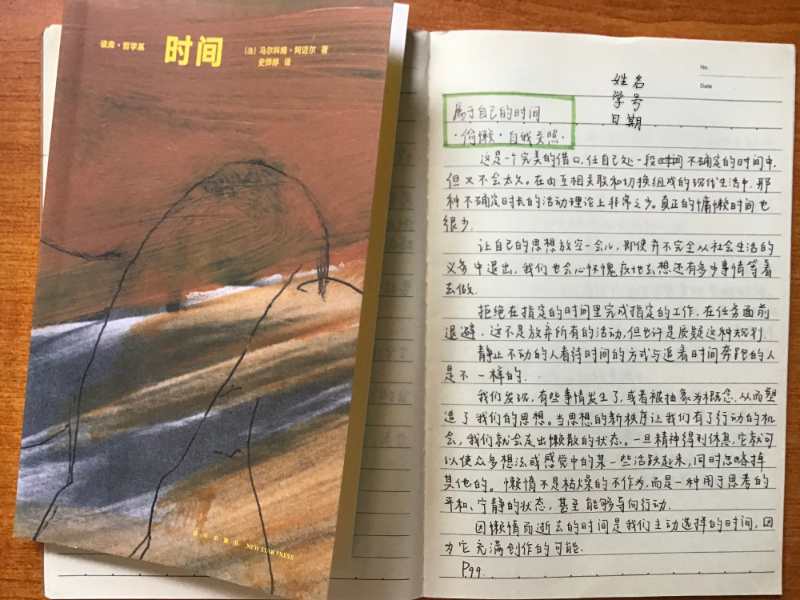 读库·哲学系
时间
[法] 马尔科姆·阿迈尔 著
史烨婷 译
新星出版社 NEW STAR PRESS
No.
Date
姓名
学号
日期
属于自己的时间
·偷懒·自我关照·
这是一个完美的借口,任自己处一段时间不确定的时间中,
但又不会太久。在由互相关联和切换组成的现代生活中,那
种不确定时长的活动理论上非常之少。真正的慵懒时间也
很少。
让自己的思想放空一会儿,即使并不完全从社会生活的
义务中退出,我们也会心怀愧疚地去想还有多少事情等着
去做。
拒绝在指定的时间里完成指定的工作,在任务面前
退避,这不是放弃所有的活动,但也许是质疑这种规划。
静止不动的人看待时间的方式与追着时间奔跑的人
是不一样的。
我们发现,有些事情发生了,或者被抽象为概念,从而塑
造了我们的思想。当思想的新秩序让我们有了行动的机
会,我们就会走出懒散的状态。一旦精神得到休息,它就可
以使众多想法或感觉中的某一些活跃起来,同时忽略掉
其他的。懒惰不是枯燥的不作为,而是一种用于思考的
平和、宁静的状态,甚至能够导向行动。
因懒惰而逝去的时间是我们主动选择的时间,因
为它充满创作的可能。
P.99